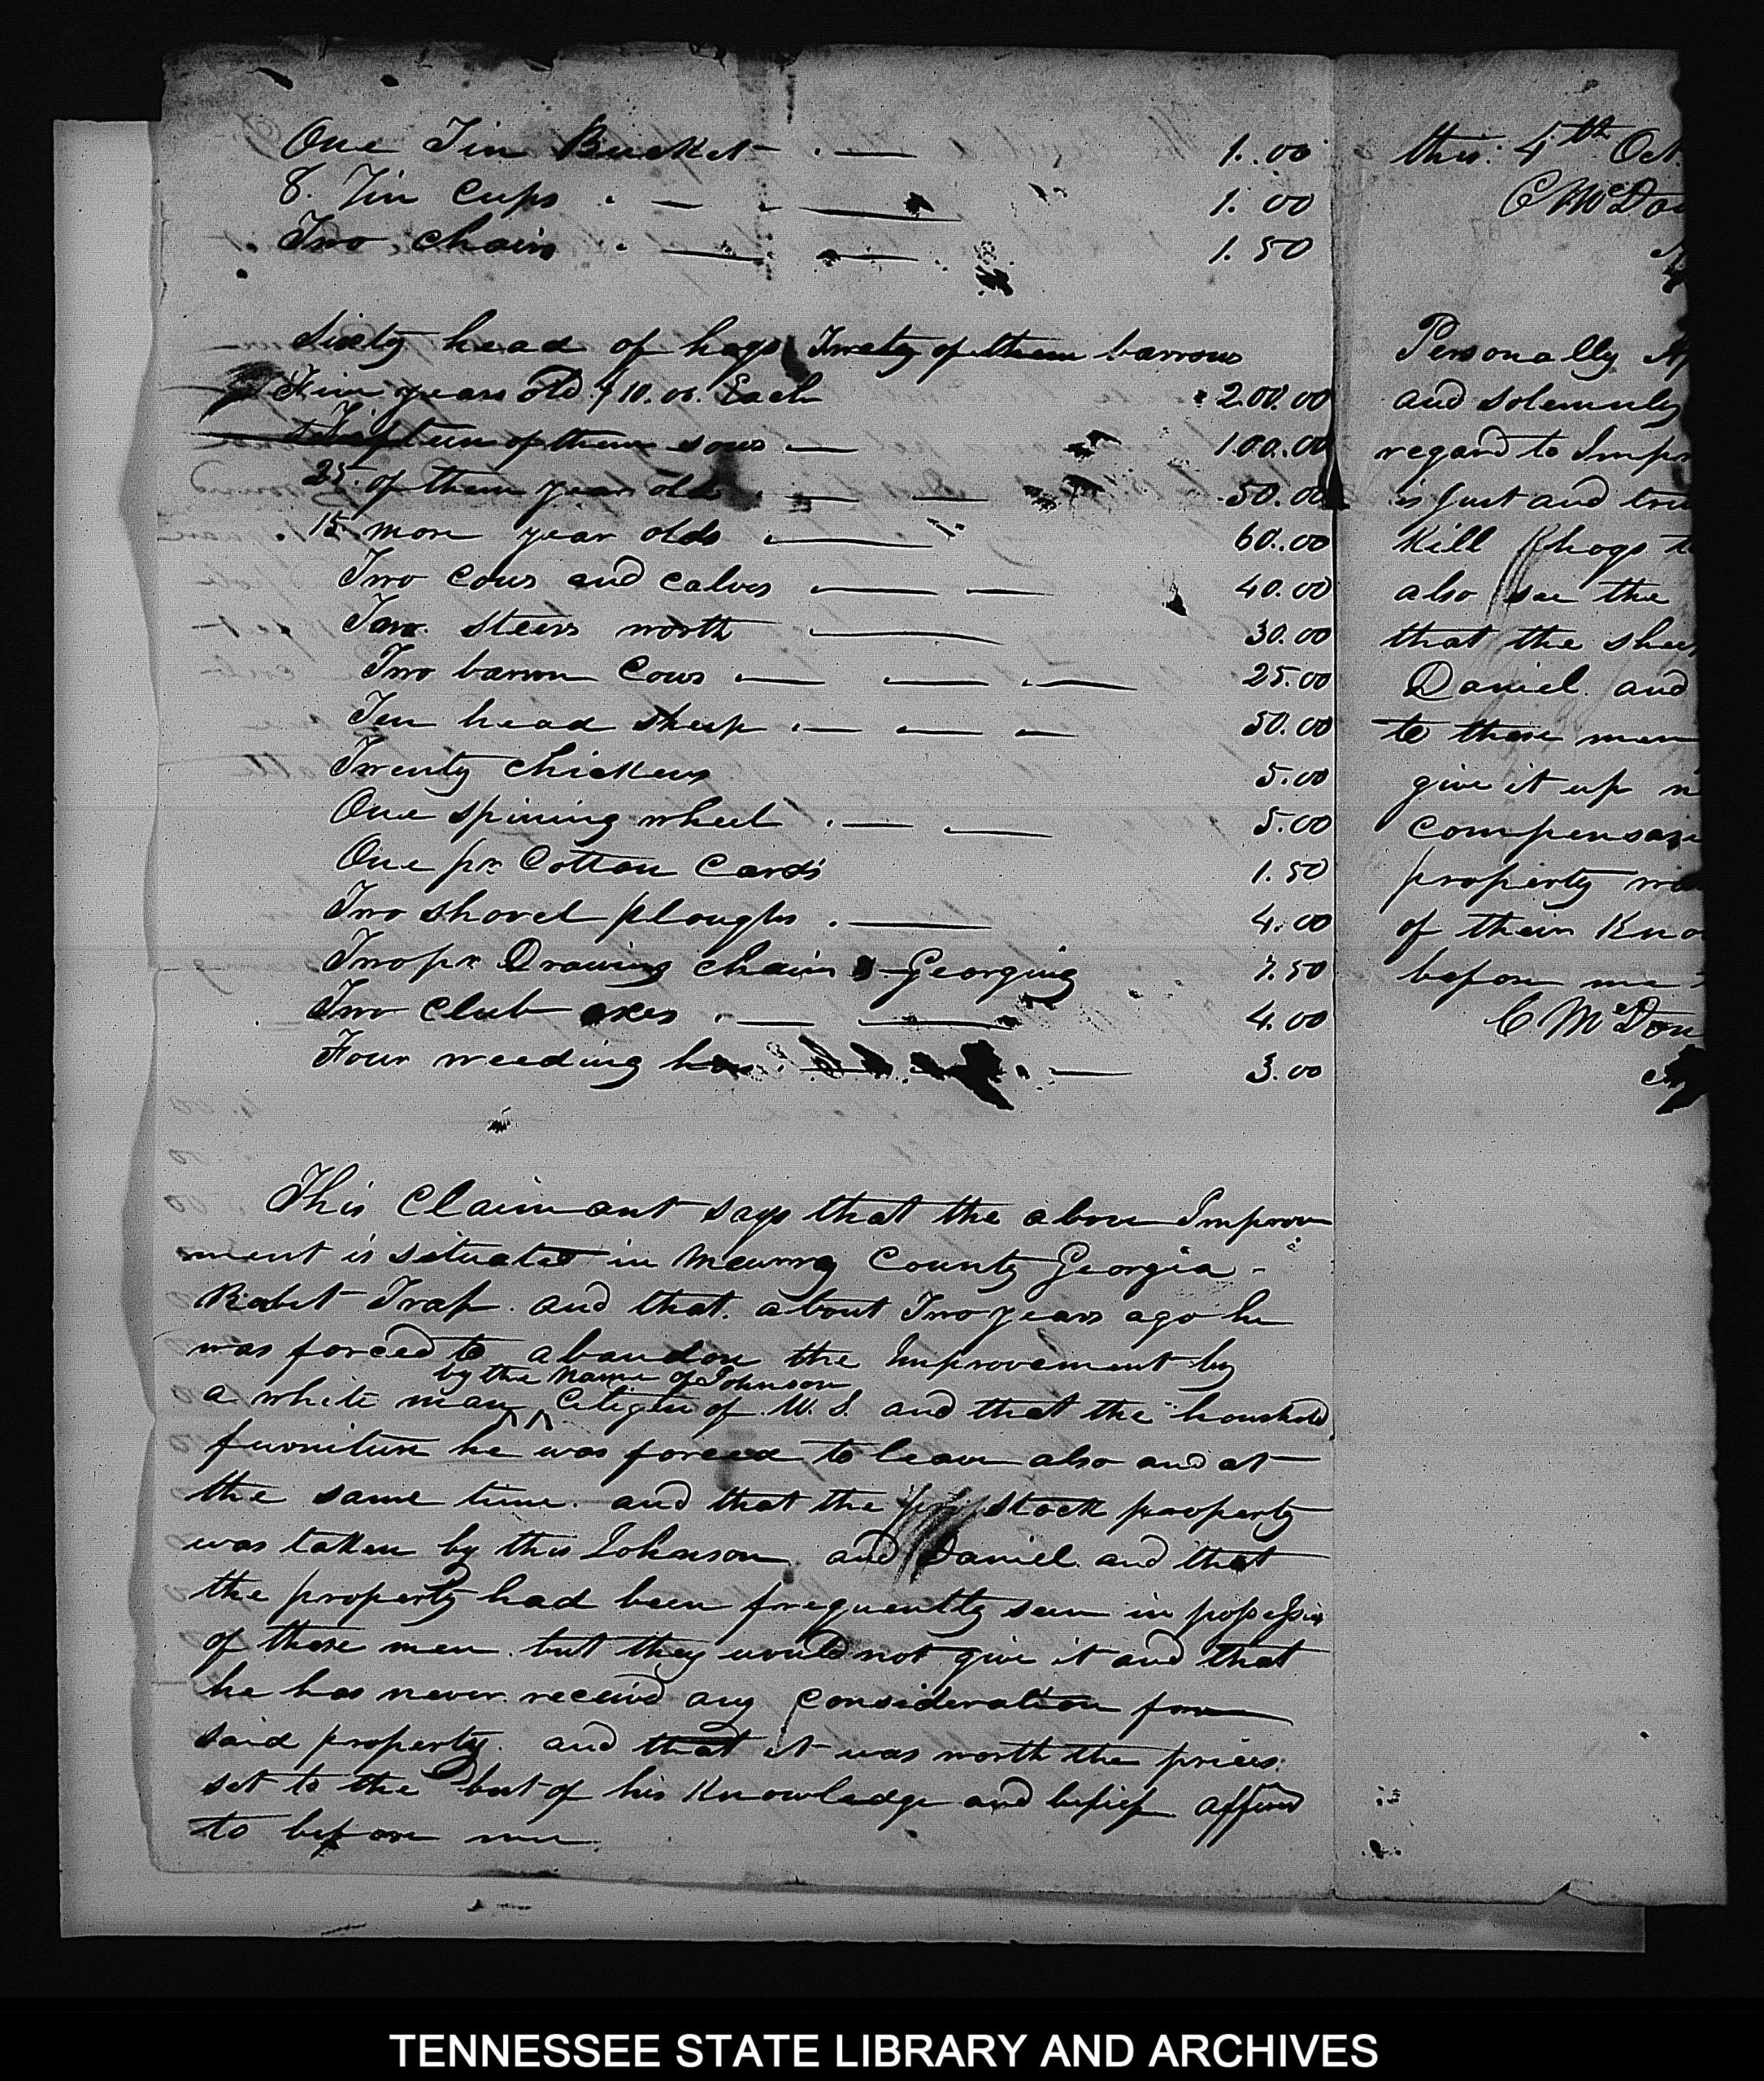 One Tin Bucket . — 1.00
8. Tin Cups . — — 1.00
Two chairs . — — 1.50
Sixty head of hogs Twety of them barrows
years old $10.00. Each 200.00
Fifteen of them sows — 100.00
25. of them year old . — — 50.00
15 more year olds — 60.00
Two Cows and Calves — — 40.00
Two. Steers worth — 30.00
Two barron Cows — — — 25.00
Ten head sheep . — — — 30.00
Twenty chickens 5.00
One spining wheel . — — 5.00
One pr Cotton Cards 1.50
Two shovel ploughs . — 4.00
Two pr Drawing chains 7.50
Two Club axes . — — 4.00
Four weeding hoes . — — 3.00
This Claimant says that the above Improve
ment is situated in Murry County Georgia -
Rabit Trap. and that. about Two years ago he
was forced to abandon the Improvement by
by the name of Johnson
a white man Citizen of U. S. and that the houshold
furniture he was forced to leave also and at
the same time. and that the stock property
was taken by this Johnson and Daniel. and that
the property had been frequently seen in possession
of these men. but they would not give it and that
he has never. received any consideration for
said property. and that it was worth the prices.
set to the best of his Knowledge and belief affirmd
to before me.
this: 4th Oct.
C McDon
Personally Ap
and solemnly
regard to Impr
is just and tru
Kill hogs
also see the
that the sheep
Daniel. and
to these men
give it up
compensa
property
of their Kno
before me
C McDon
TENNESSEE STATE LIBRARY AND ARCHIVES